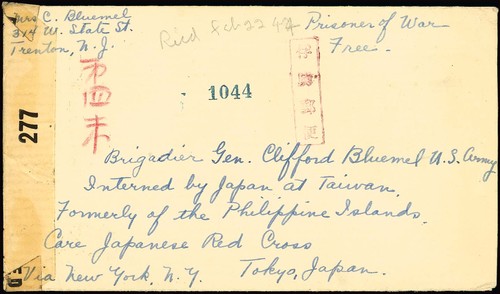 Mrs C. Bluemel
314 W. State St.
Trenton, N.J.
Rec'd Feb 22 44
Prisoner of War
Free.
1044
俘虜郵便
第四未
277
Brigadier Gen. Clifford Bluemel U.S. Army
Interned by Japan at Taiwan.
Formerly of the Philippine Islands.
Care Japanese Red Cross
Via New York, N.Y. Tokyo, Japan.